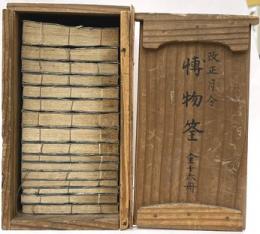 改正月令
博物筌
全十六冊